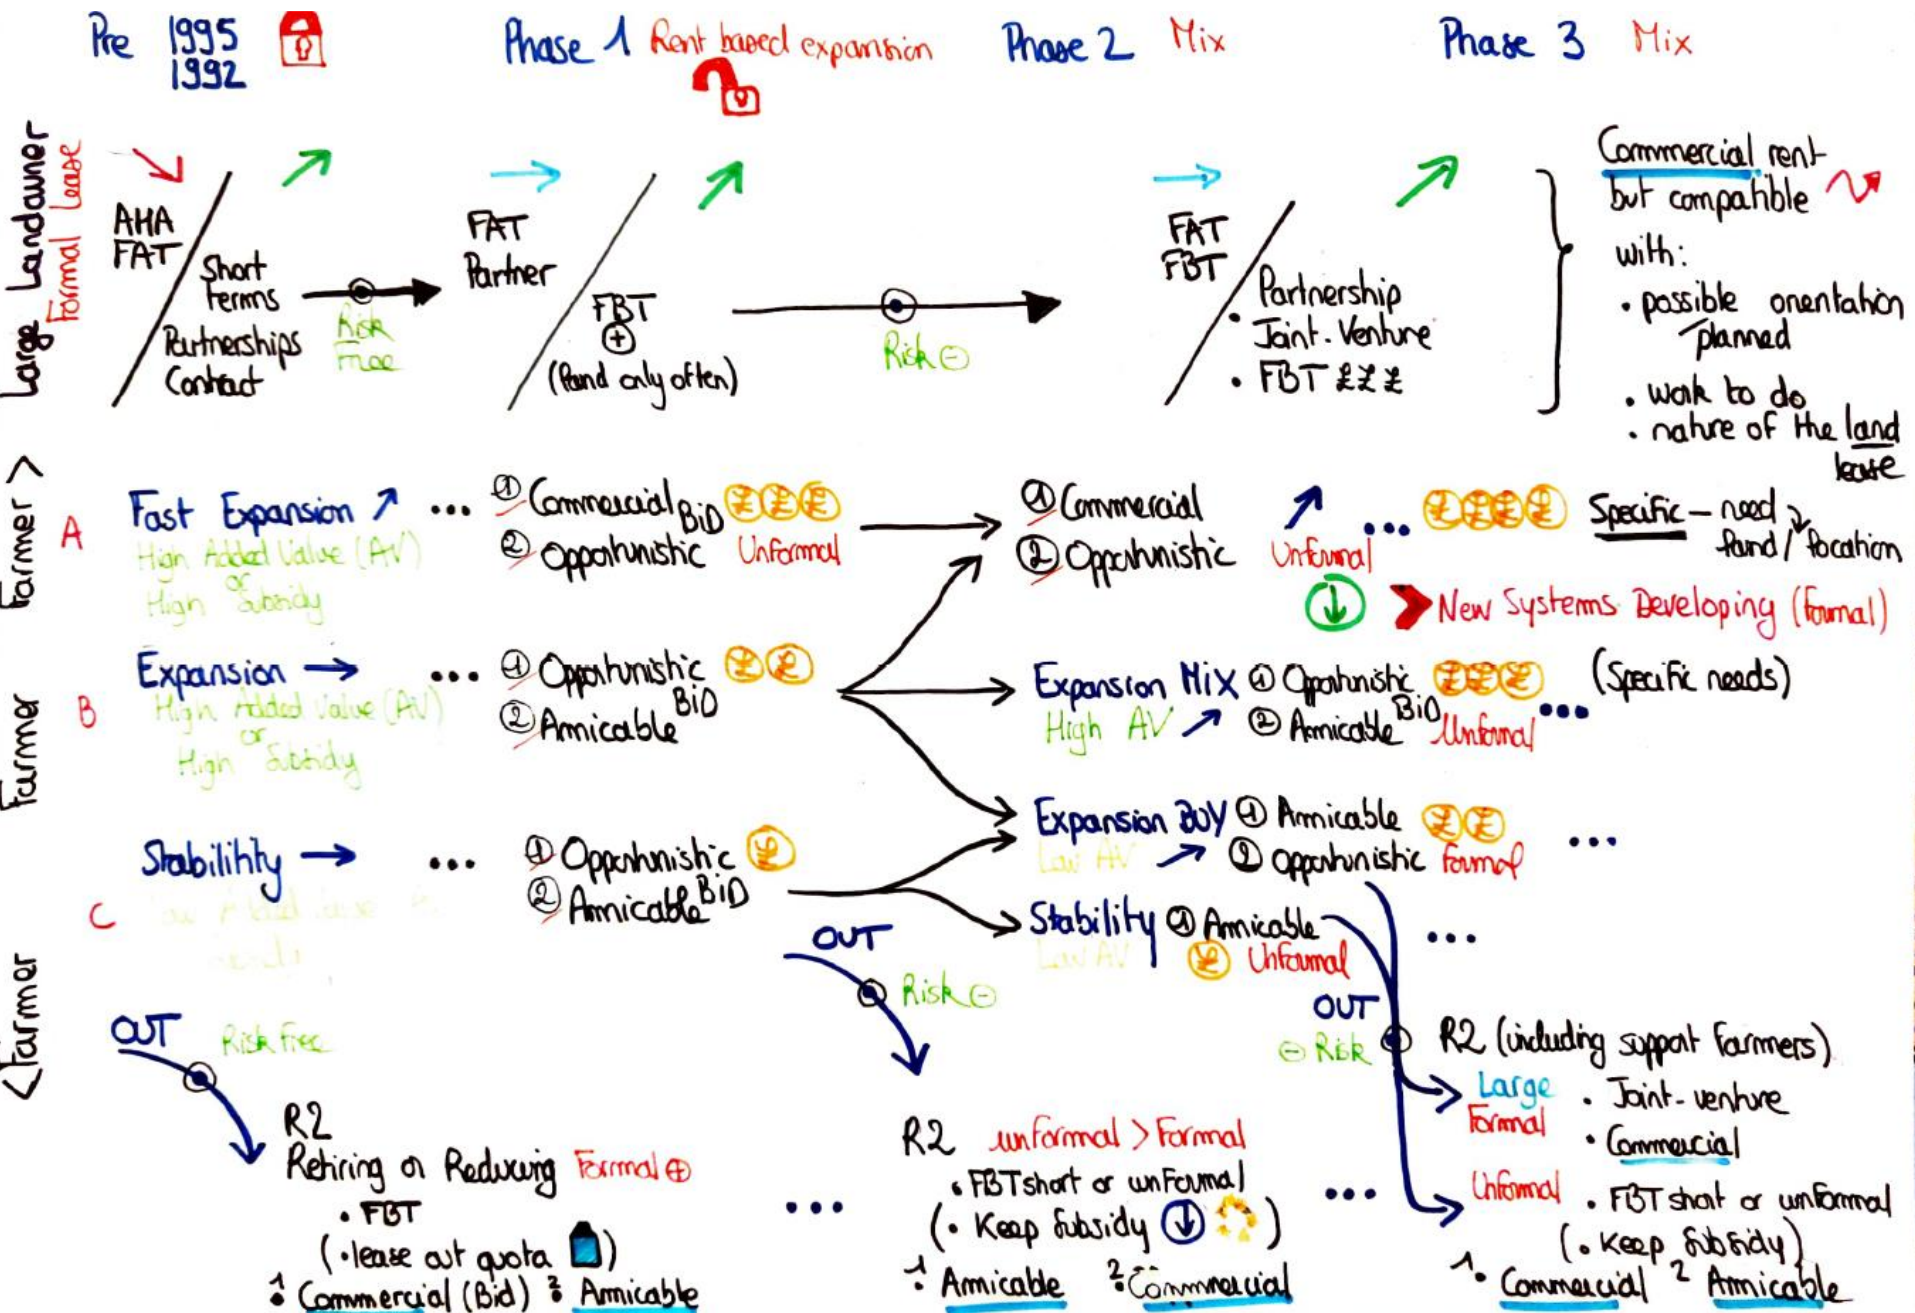 Pre 1995
1992
Phase 1 Rent based expansion
Phase 2 Mix
Phase 3 Mix
Large Landowner
Formal Lease
AHA
FAT
Short
terms
Partnerships
Contract
Risk
Free
FAT
Partner
FBT
+
(land only often)
Risk -
FAT
FBT
Partnership
• Joint-Venture
• FBT £££
Commercial rent
but compatible
with:
• possible orientation
planned
• work to do
• nature of the land
lease
Farmer >
A
Fast Expansion
High Added Value (AV)
or
High Subsidy
... 1 Commercial BiD £££
2 Opportunistic Unformal
1 Commercial
2 Opportunistic Unformal
... ££££ Specific - need
land / location
New Systems Developing (formal)
Farmer
B
Expansion →
High Added Value (AV)
or
High Subsidy
... 1 Opportunistic ££
BiD
2 Amicable
Expansion Mix 1 Opportunistic £££
High AV 2 Amicable BiD Unformal ...
(Specific needs)
Expansion BUY 1 Amicable ££
Low AV 2 opportunistic formal
...
< Farmer
C
Stabilihity →
... 1 Opportunistic £
2 Amicable BiD
Stability 1 Amicable
Low AV £ Unformal
...
OUT
Risk Free
R2
Retiring or Reducing Formal +
• FBT
(• lease out quota )
1. Commercial (Bid) 2. Amicable
...
OUT
Risk -
R2 unformal > Formal
• FBT short or unformal
(• Keep Subsidy )
1. Amicable 2. Commmercial
...
OUT
- Risk
R2 (including support farmers)
Large
Formal
• Joint-venture
• Commercial
Unformal
• FBT short or unformal
(• Keep Subsidy)
1. Commercial 2 Amicable